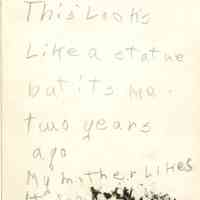 This Looks
Like a statue
but its me.
two years
ago
My mother Likes